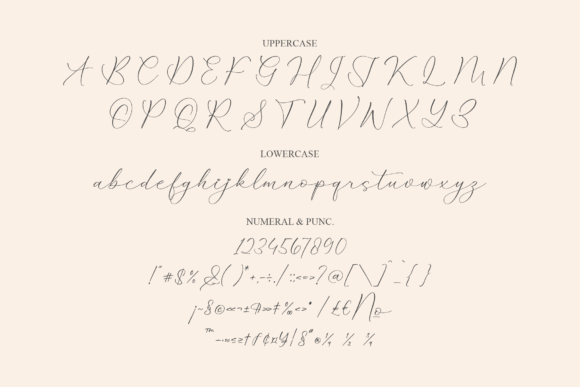 UPPERCASE
A B C D E F G H I J K L M N
O P Q R S T U V W X Y Z
LOWERCASE
abcdefghijklmnopqrstuvwxyz
NUMERAL & PUNC.
1234567890
!"#$%&()*+,-./:;<=>?@[\]^_`{}
¡¬§©«¬±¶»‰‹›•/£€№
™−∞≤≥†ƒ¢¤¥|§ª®¼ ½ ¾